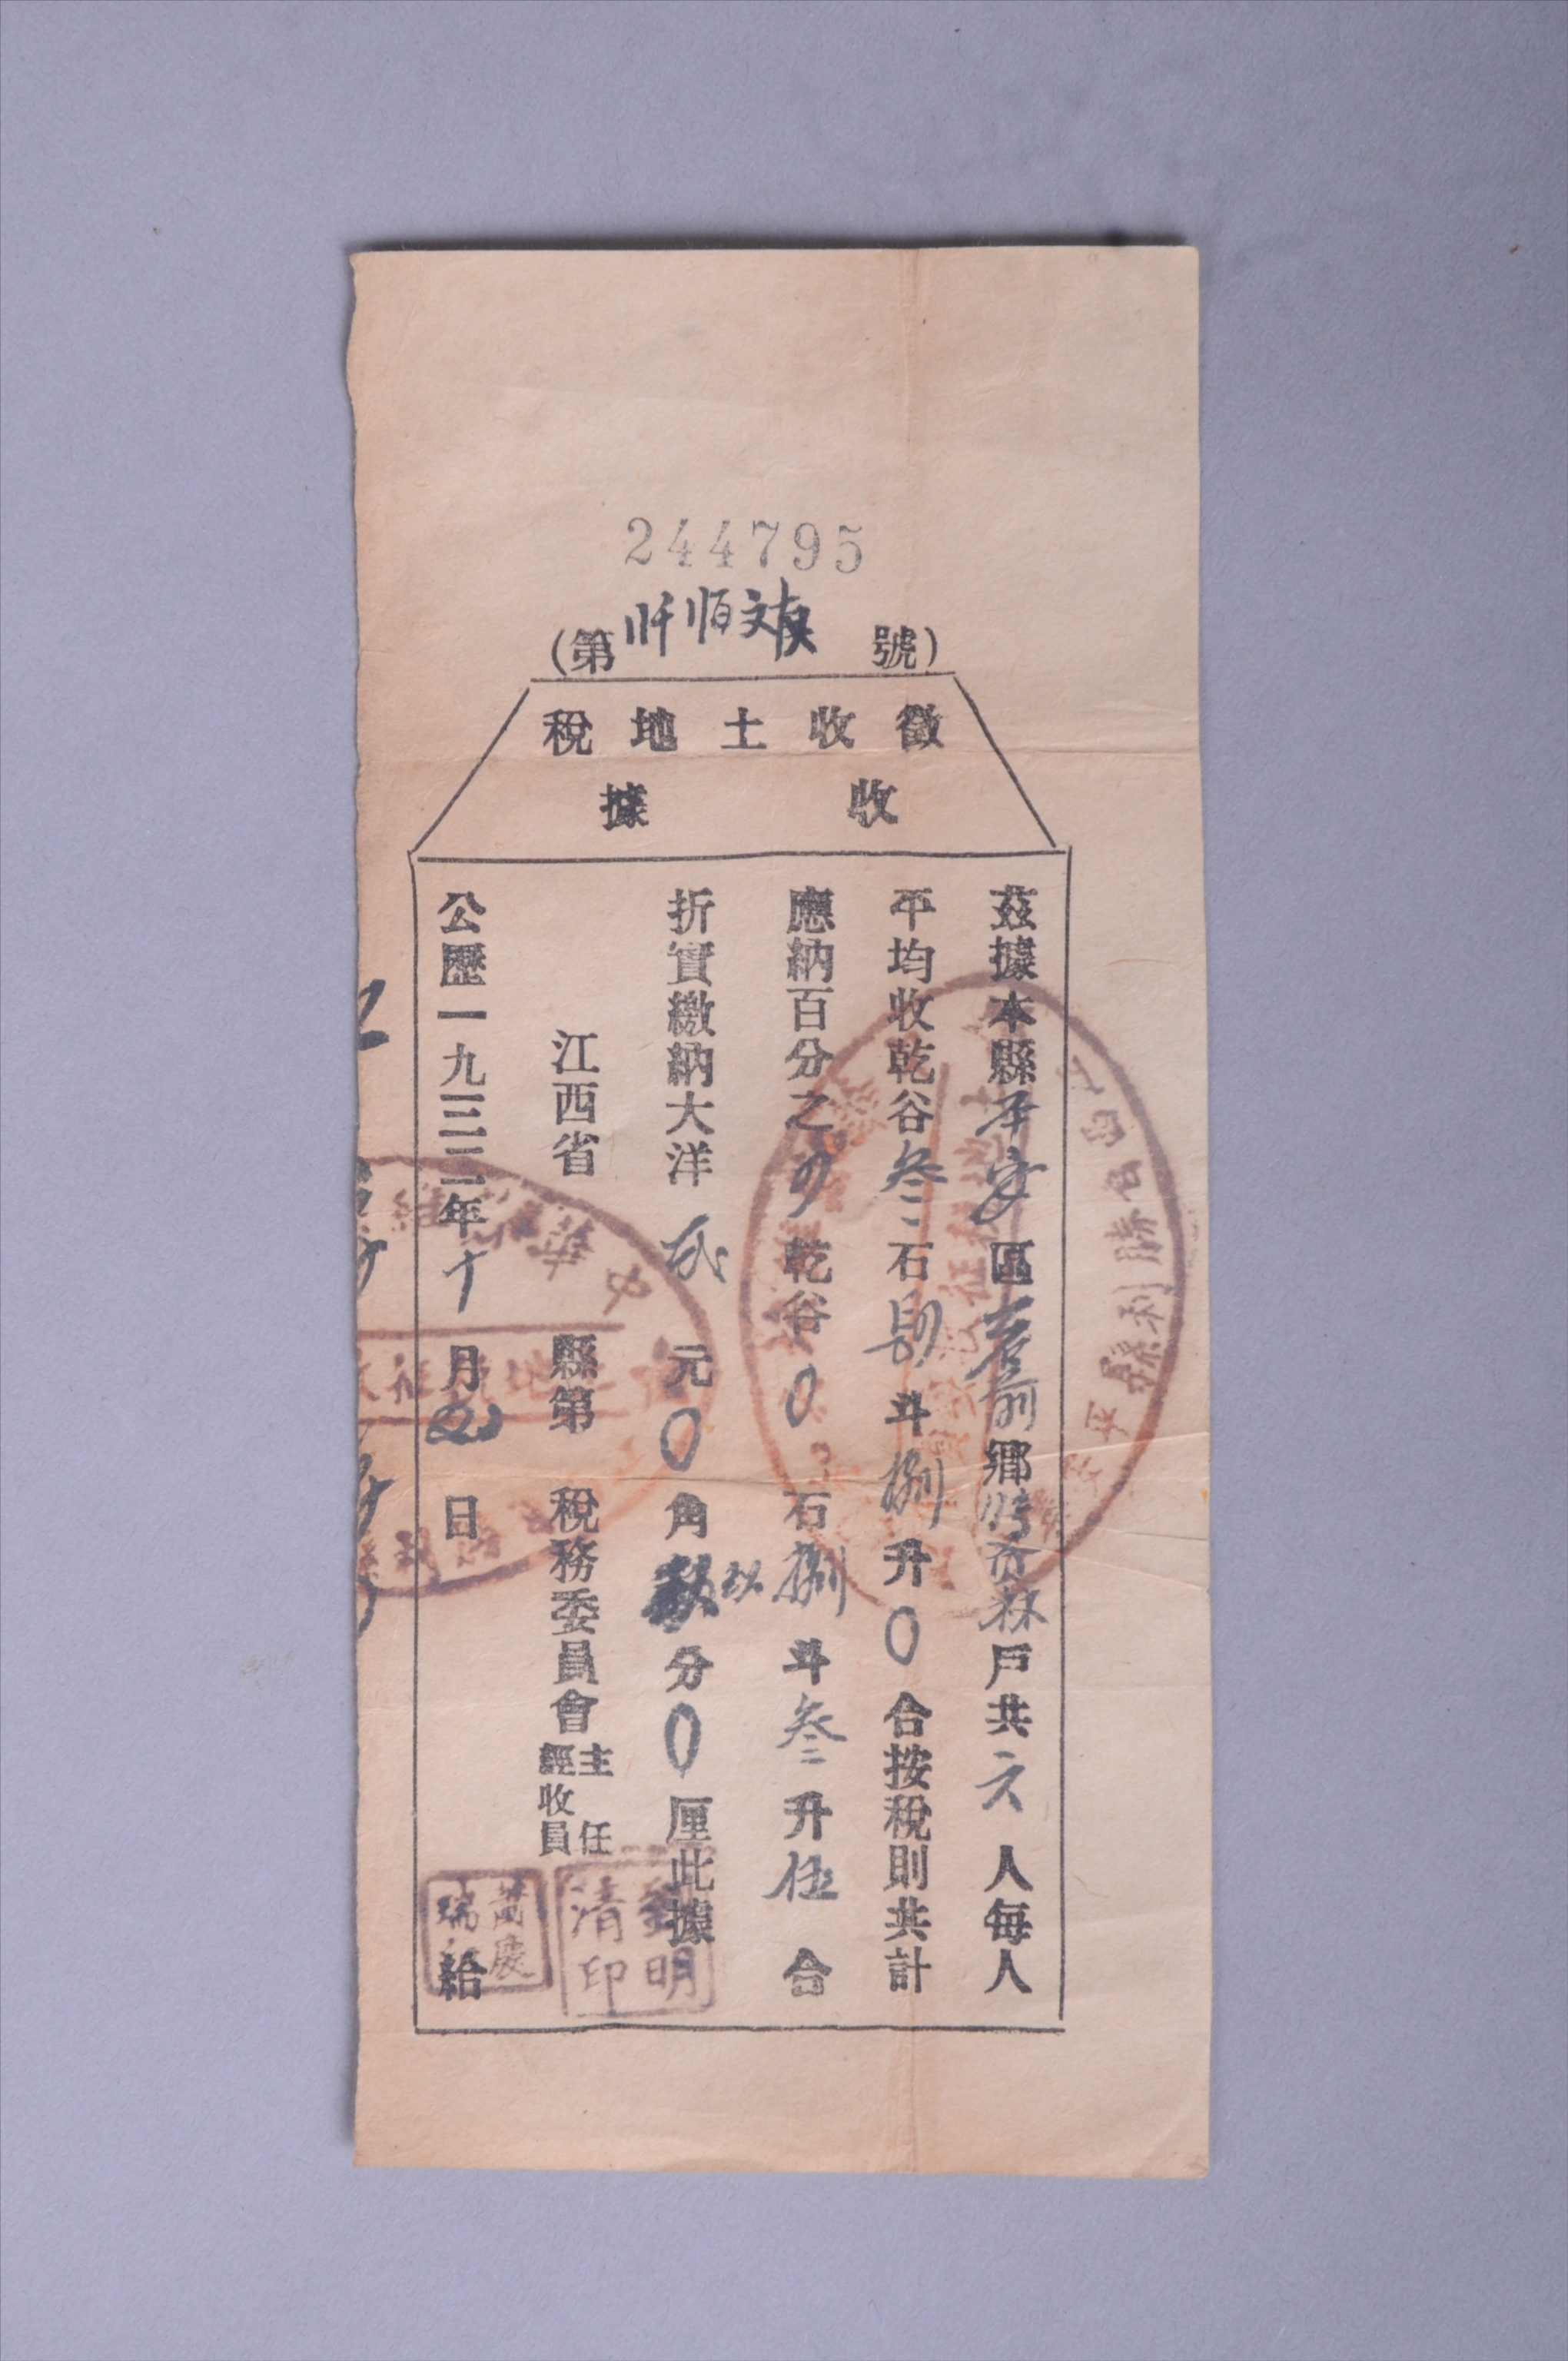 244795
(第 號)
徵收土地稅
收據
茲據本縣平安區 鄉 戶共六人每人
平均收乾谷叁石 斗捌升0合按稅則共計
應納百分之 乾谷0石捌斗叁升伍合
折實繳納大洋弍元0角 分0厘此據
江西省 縣第 稅務委員會主任
經收員
公歷一九三三年十月 日
給
清印 明
慶瑞
勝利縣平